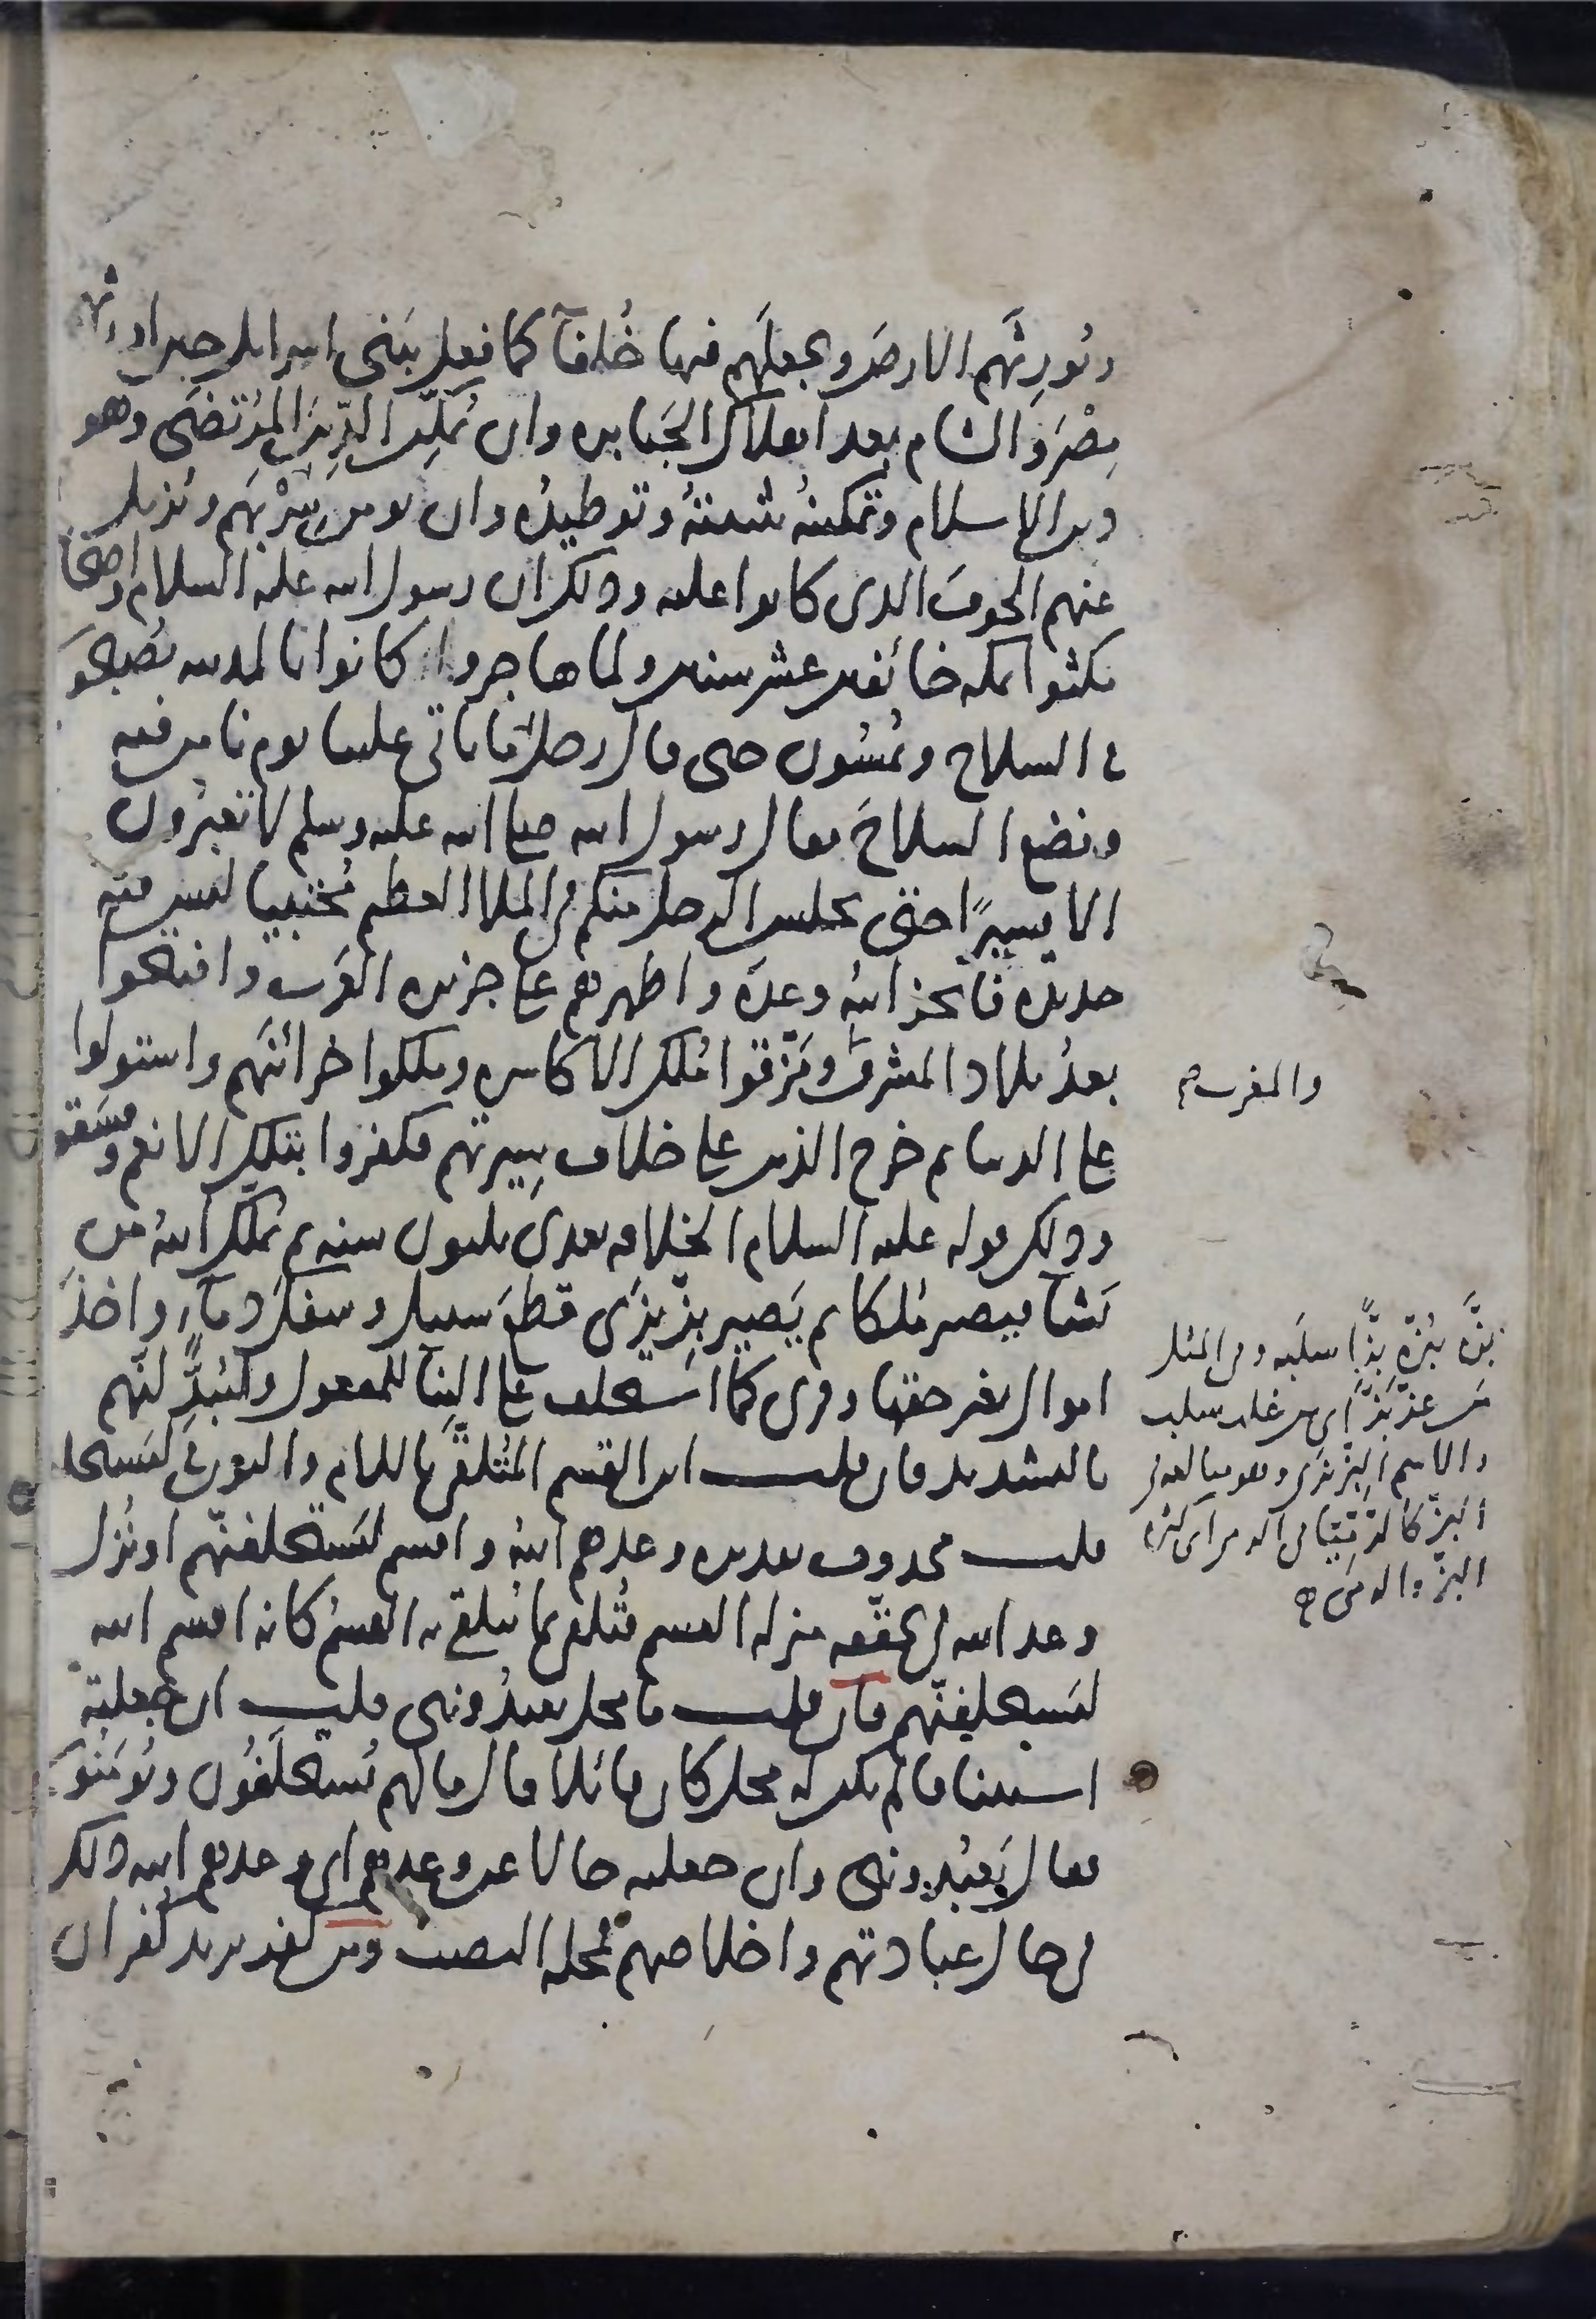 ونورثهم الارض ويجعلهم فيها خلفآ كما فعل ببنى اسرايل حين اورثهم
مصر والشام بعد اهلاك الجبابره وان يمكن الدين المرتضى وهو
دين الاسلام وتمكينه تثبيته وتوطيده وان يومن سربهم ويزيل
عنهم الخوف الذى كانوا عليه وذلك ان رسول الله عليه السلام واصحابه
مكثوا بمكه خائفين عشر سنين ولما هاجروا كانوا بالمدينه يصبحون
فى السلاح ويمسون حتى قال رجل ما ياتى علينا يوم نامن فيه
ونضع السلاح فقال رسول الله صلى الله عليه وسلم لا تغبرون
الا يسيرا حتى يجلس الرجل منكم فى الملا العظيم محتبيا ليس فيه
حديده فانجز الله وعده واظهرهم على جزيره العرب وافتتحوا
بعد بلاد المشرق ومزقوا ملك الاكاسره وملكوا خزائنهم واستولوا
على الدنيا ثم خرج الذين على خلاف سيرتهم فكفروا بتلك الانعم وفسقوا
وذلك قوله عليه السلام الخلافه بعدى ثلثون سنه ثم يملك الله من
يشآ فيصير ملكا ثم يصير بزيزى قطع سبيل وسفك دمآء واخذ
اموال بغير حقها وقرى كما استخلف على البنآ للمفعول وليبدلنهم
بالتشديد فان قلت اين القسم المتلقى باللام والنون فى ليستخلفنهم
قلت محذوف تقديره وعدهم الله واقسم ليستخلفنهم او نزل
وعد الله فى تحققه منزله القسم فتلقى بما يتلقى به القسم كانه اقسم الله
ليستخلفنهم فان قلت ما محل يعبدوننى قلت ان جعلته
استينافا لم يكن له محل كان قائلا قال ما لهم يستخلفون ويومنون
فقال يعبدوننى وان جعلته حالا عن وعدهم اى وعدهم الله ذلك
فى حال عبادتهم واخلاصهم فمحله النصب ومن كفر يريد كفران
والمغرب صح
بزه يبزه بزا سلبه وفى المثل
من عز بز اى من غلب سلب
والاسم البزيزى وهو مبالغه فى
البز كالرميا فى الرمى اى كثره
البز والرمى